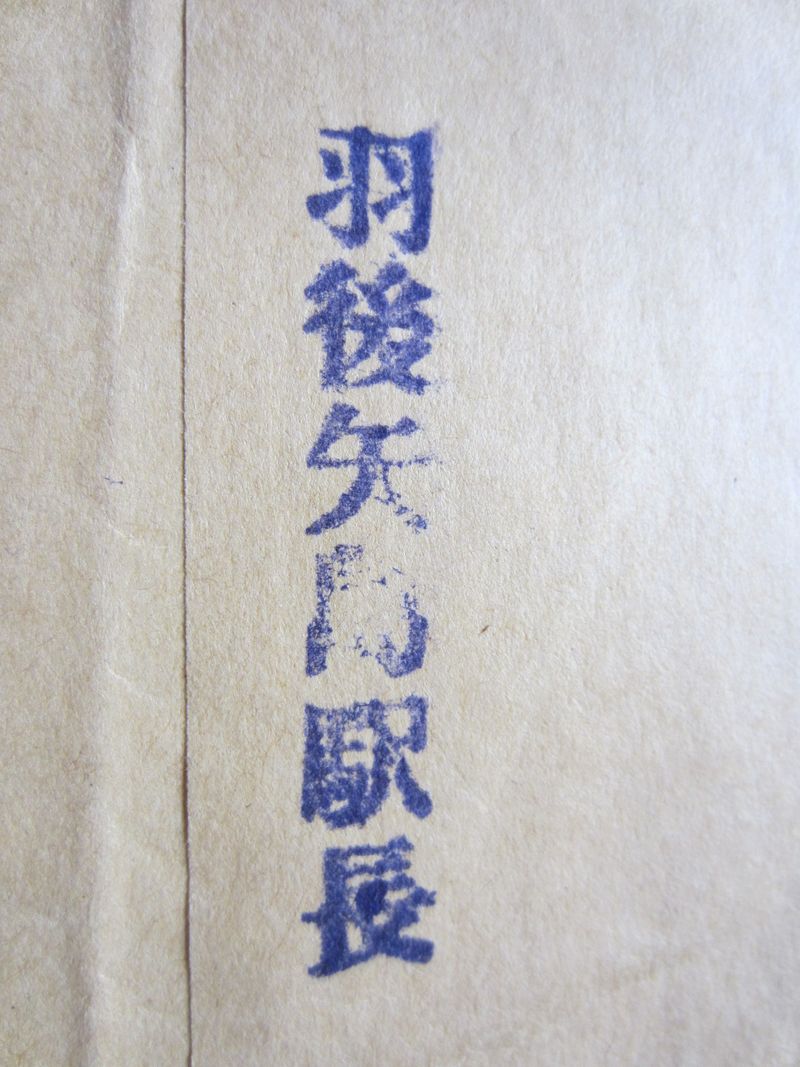 羽後矢島駅長